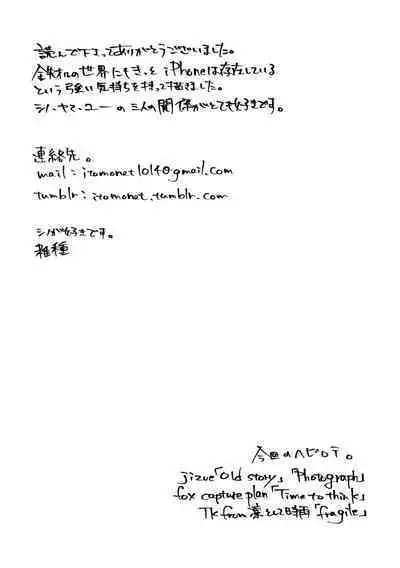 読んで下さってありがとうございました。
全ネルの世界にもきっと iPhoneは存在している
という強い気持ちを持って描きました。
シノ・ヤマ・ユーの三人の関係がとても好きです。
連絡先。
mail : itomonet1014@gmail.com
tumblr : itomonet.tumblr.com
シノが好きです。
雑種
今回のヘビロテ。
jizue「Old story」「Photograph」
fox capture plan「Time to think」
TK from 凛として時雨「fragile」